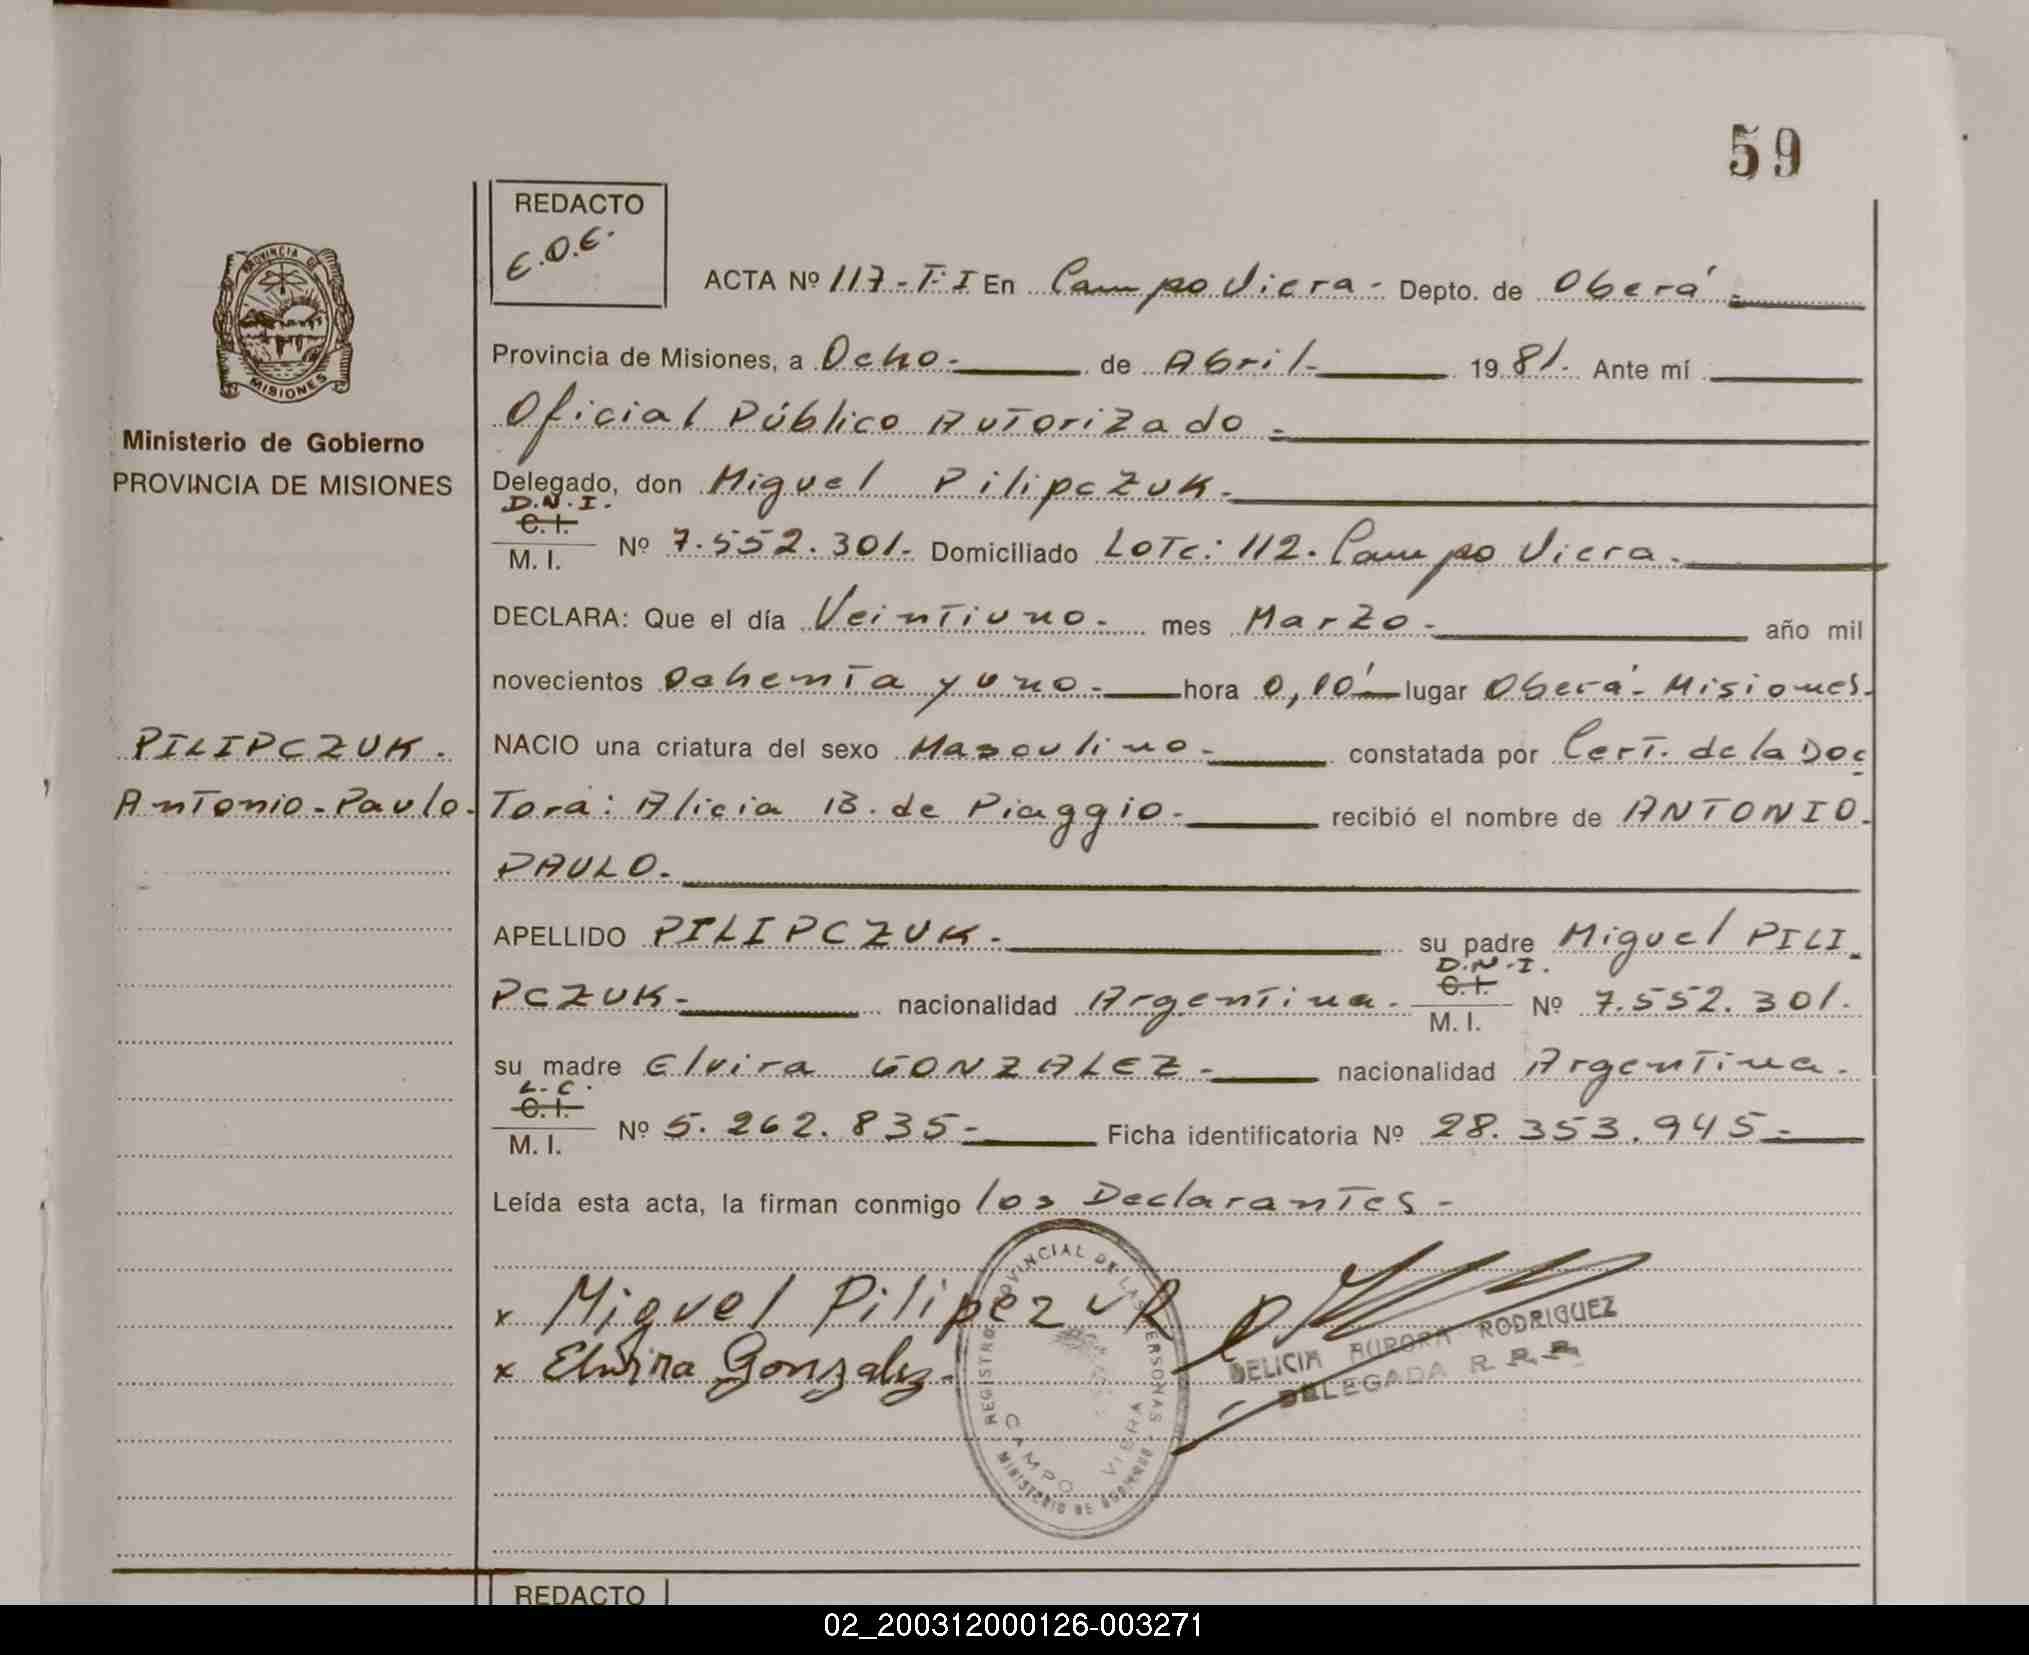 59
REDACTO
E.O.E.
ACTA Nº 117-T-I En Campo Viera.- Depto. de Oberá.-
Provincia de Misiones, a Ocho.- de Abril.- 1981.- Ante mí
Oficial Público Autorizado.-
PROVINCIA DE
MISIONES
Ministerio de Gobierno
PROVINCIA DE MISIONES
Delegado, don Miguel Pilipczuk.-
D.N.I.
C.I.
M. I. Nº 7.552.301.- Domiciliado Lote: 112. Campo Viera.-
DECLARA: Que el día Veintiuno.- mes Marzo.- año mil
novecientos Ochenta y uno.- hora 0,10' lugar Oberá- Misiones.
PILIPCZUK.
NACIO una criatura del sexo Masculino.- constatada por Cert. de la Doc
Antonio-Paulo.
Tora: Alicia B. de Piaggio.- recibió el nombre de ANTONIO.
PAULO.-
APELLIDO PILIPCZUK.- su padre Miguel PILI-
D.N.I.
C.I.
PCZUK.- nacionalidad Argentina.- M. I. Nº 7.552.301.
su madre Elvira GONZALEZ.- nacionalidad Argentina.-
L.C.
C.I.
M. I. Nº 5.262.835.- Ficha identificatoria Nº 28.353.945.-
Leída esta acta, la firman conmigo los Declarantes.-
x Miguel Pilipczuk
x Elvira Gonzalez.
REGISTRO PROVINCIAL DE LAS PERSONAS
CAMPO VIERA
MINISTERIO DE GOBIERNO
DELICIA AURORA RODRIGUEZ
DELEGADA R. P. P.
REDACTO
02_200312000126-003271